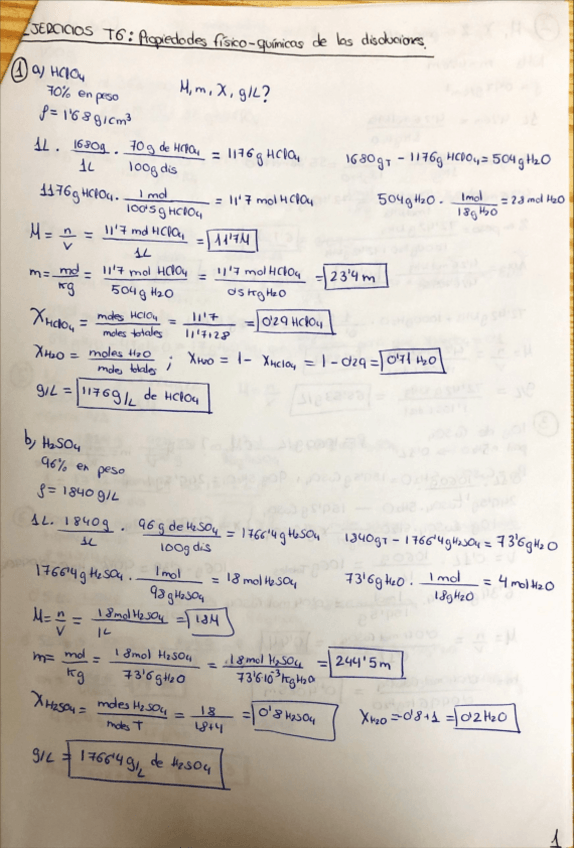 EJERCICIOS T6: Propiedades físico-químicas de las disoluciones.
① a) HClO4
70% en peso M, m, X, g/L?
ρ = 1'68 g/cm³
1L · 1680g/1L · 70 g de HClO4/100g dis = 1176g HClO4 1680gT - 1176g HClO4 = 504g H2O
1176g HClO4 · 1 mol/100'5g HClO4 = 11'7 mol HClO4 504g H2O · 1mol/18g H2O = 28 mol H2O
M = n/V = 11'7 mol HClO4/1L = 11'7M
m = mol/Kg = 11'7 mol HClO4/504g H2O = 11'7 mol HClO4/0'5 Kg H2O = 23'4 m
XHClO4 = moles HClO4/moles totales = 11'7/11'7+28 = 0'29 HClO4
XH2O = moles H2O/moles totales ; XH2O = 1 - XHClO4 = 1 - 0'29 = 0'71 H2O
g/L = 1176 g/L de HClO4
b) H2SO4
96% en peso
ρ = 1840 g/L
1L · 1840g/1L · 96 g de H2SO4/100g dis = 1766'4 g H2SO4 1840gT - 1766'4 g H2SO4 = 73'6g H2O
1766'4 g H2SO4 · 1mol/98g H2SO4 = 18 mol H2SO4 73'6g H2O · 1mol/18g H2O = 4 mol H2O
M = n/V = 18mol H2SO4/1L = 18M
m = mol/Kg = 18mol H2SO4/73'6g H2O = 18mol H2SO4/73'6·10⁻³ Kg H2O = 244'5 m
XH2SO4 = moles H2SO4/moles T = 18/18+4 = 0'8 H2SO4 XH2O = -0'8+1 = 0'2 H2O
g/L = 1766'4 g/L de H2SO4
1